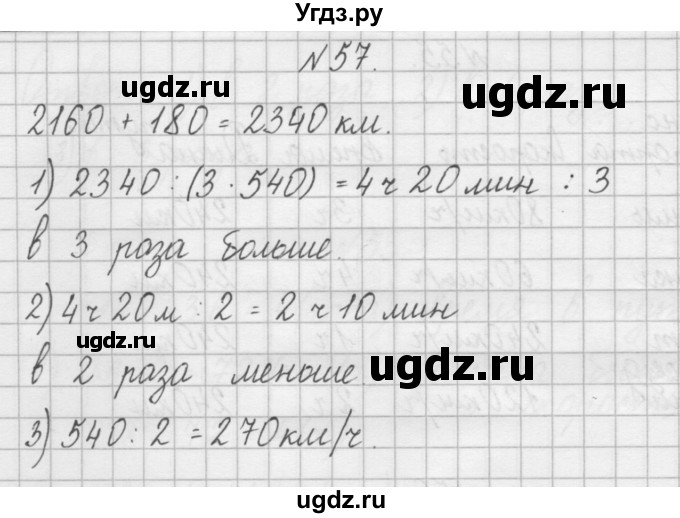 Угдз.ру
№57.
ugdz.ru
ugdz.ru
2160 + 180 = 2340 км.
1) 2340 : (3 · 540) = 4ч 20 мин : 3
в 3 раза больше.
2) 4ч 20м : 2 = 2 ч 10 мин
ugdz.ru
ugdz.ru
в 2 раза меньше
3) 540 : 2 = 270 км/ч.
ugdz.ru